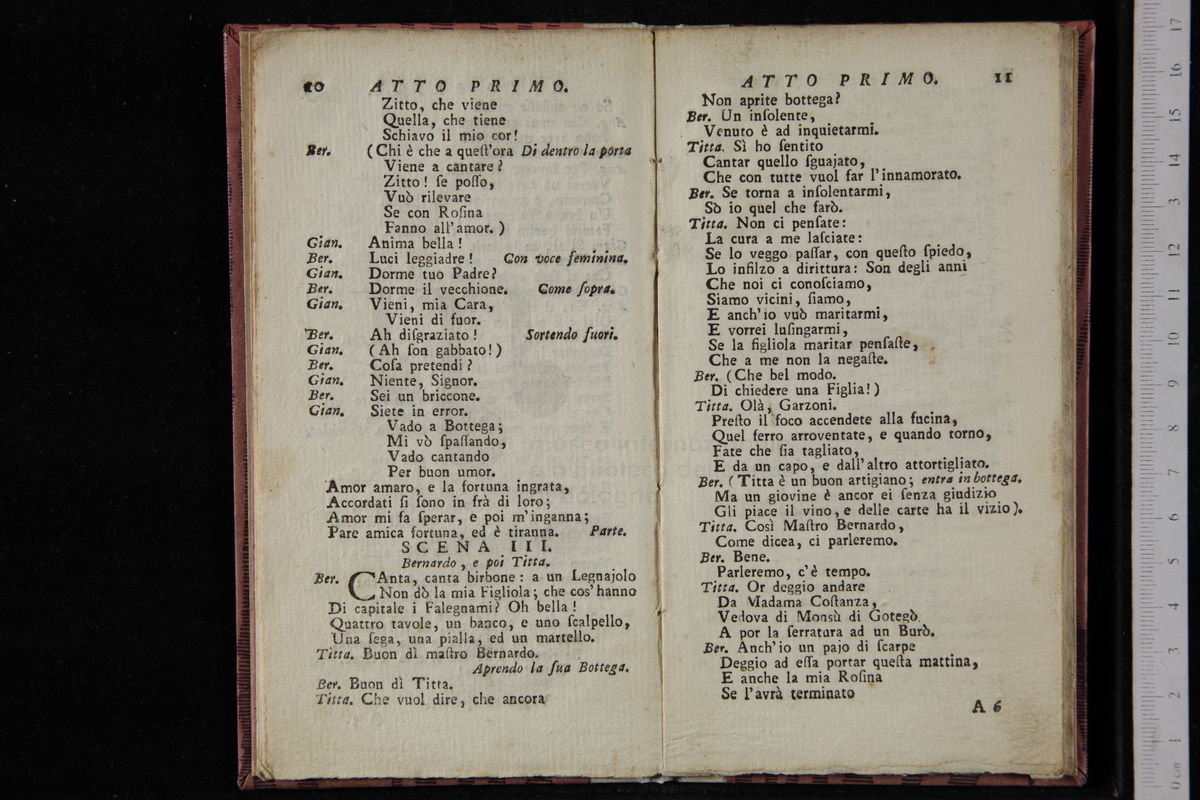 10 ATTO PRIMO.
Zitto, che viene
Quella, che tiene
Schiavo il mio cor!
Ber. (Chi è che a queſt'ora Di dentro la porta
Viene a cantare?
Zitto! ſe poſſo,
Vuò rilevare
Se con Roſina
Fanno all'amor.)
Gian. Anima bella!
Ber. Luci leggiadre! Con voce feminina.
Gian. Dorme tuo Padre?
Ber. Dorme il vecchione. Come ſopra.
Gian. Vieni, mia Cara,
Vieni di fuor.
Ber. Ah diſgraziato! Sortendo fuori.
Gian. (Ah ſon gabbato!)
Ber. Coſa pretendi?
Gian. Niente, Signor.
Ber. Sei un briccone.
Gian. Siete in error.
Vado a Bottega;
Mi vò ſpaſſando,
Vado cantando
Per buon umor.
Amor amaro, e la fortuna ingrata,
Accordati ſi ſono in frà di loro;
Amor mi fa ſperar, e poi m'inganna;
Pare amica fortuna, ed è tiranna. Parte.
SCENA III.
Bernardo, e poi Titta.
Ber. CAnta, canta birbone: a un Legnajolo
Non dò la mia Figliola; che cos'hanno
Di capitale i Falegnami? Oh bella!
Quattro tavole, un banco, e uno ſcalpello,
Una ſega, una pialla, ed un martello.
Titta. Buon dì maſtro Bernardo.
Aprendo la ſua Bottega.
Ber. Buon dì Titta.
Titta. Che vuol dire, che ancora
ATTO PRIMO. 11
Non aprite bottega?
Ber. Un inſolente,
Venuto è ad inquietarmi.
Titta. Sì ho ſentito
Cantar quello ſguajato,
Che con tutte vuol far l'innamorato.
Ber. Se torna a inſolentarmi,
Sò io quel che farò.
Titta. Non ci penſate:
La cura a me laſciate:
Se lo veggo paſſar, con queſto ſpiedo,
Lo infilzo a dirittura: Son degli anni
Che noi ci conoſciamo,
Siamo vicini, ſiamo,
E anch'io vuò maritarmi,
E vorrei luſingarmi,
Se la figliola maritar penſaſte,
Che a me non la negaſte.
Ber. (Che bel modo.
Di chiedere una Figlia!)
Titta. Olà, Garzoni.
Preſto il foco accendete alla fucina,
Quel ferro arroventate, e quando torno,
Fate che ſia tagliato,
E da un capo, e dall'altro attortigliato.
Ber. (Titta è un buon artigiano; entra in bottega.
Ma un giovine è ancor ei ſenza giudizio
Gli piace il vino, e delle carte ha il vizio).
Titta. Così Maſtro Bernardo,
Come dicea, ci parleremo.
Ber. Bene.
Parleremo, c'è tempo.
Titta. Or deggio andare
Da Madama Coſtanza,
Vedova di Monsù di Gotegò
A por la ſerratura ad un Burò.
Ber. Anch'io un pajo di ſcarpe
Deggio ad eſſa portar queſta mattina,
E anche la mia Roſina
Se l'avrà terminato
A 6